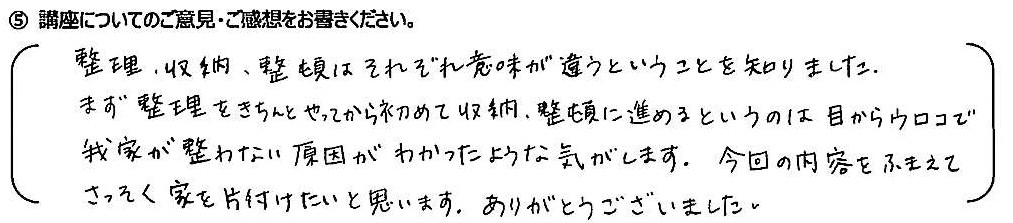 ⑤ 講座についてのご意見・ご感想をお書きください。
整理、収納、整頓はそれぞれ意味が違うということを知りました.
まず整理をきちんとやってから初めて収納、整頓に進めるというのは目からウロコで
我家が整わない原因がわかったような気がします. 今回の内容をふまえて
さっそく家を片付けたいと思います. ありがとうございました.